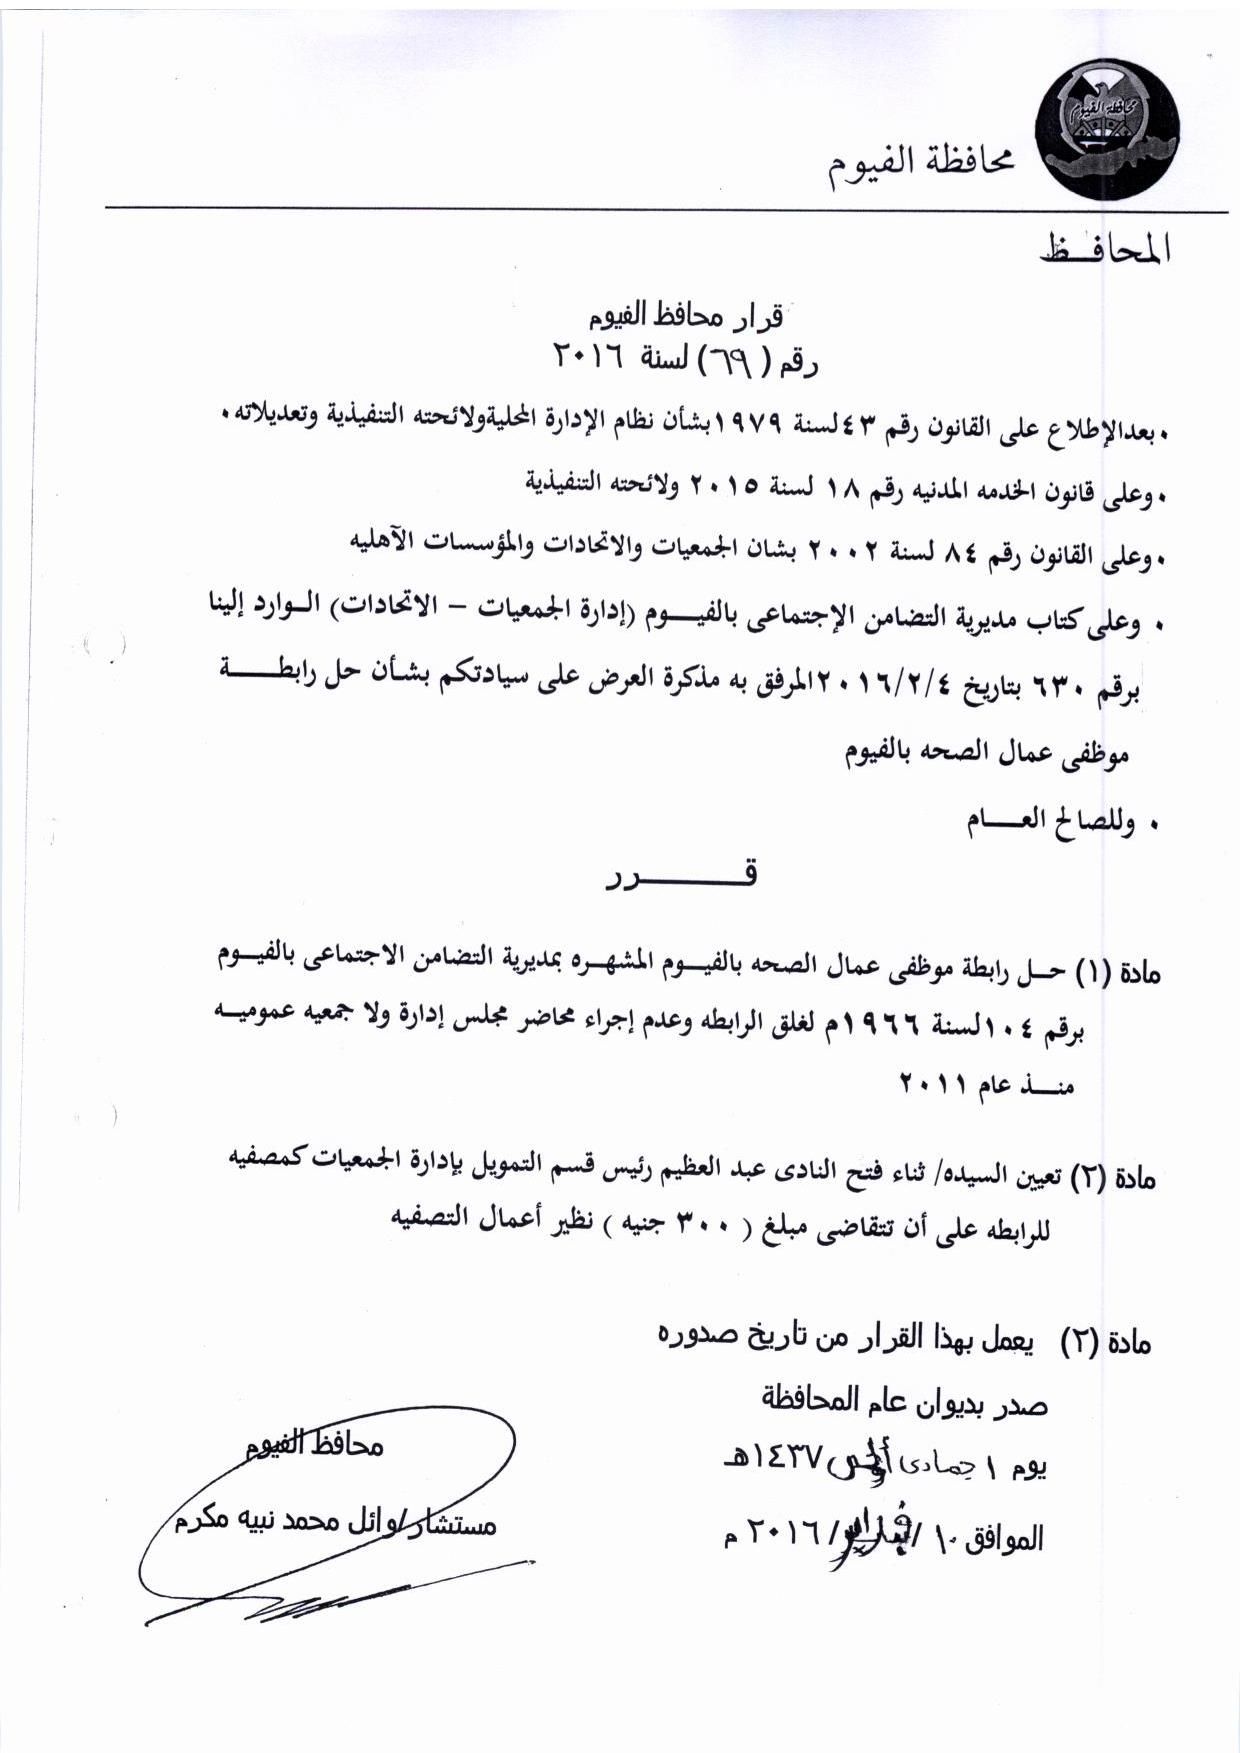 محافظة الفيوم
محافظة الفيوم
المحافــظ
قرار محافظ الفيوم
رقم ( ٦٩ ) لسنة ٢٠١٦
• بعدالإطلاع على القانون رقم ٤٣لسنة ١٩٧٩بشأن نظام الإدارة المحليةولائحته التنفيذية وتعديلاته .
• وعلى قانون الخدمه المدنيه رقم ١٨ لسنة ٢٠١٥ ولائحته التنفيذية
• وعلى القانون رقم ٨٤ لسنة ٢٠٠٢ بشان الجمعيات والاتحادات والمؤسسات الآهليه
• وعلى كتاب مديرية التضامن الإجتماعى بالفيــوم (إدارة الجمعيات – الاتحادات) الـوارد إلينا
برقم ٦٣٠ بتاريخ ٢٠١٦/٢/٤المرفق به مذكرة العرض على سيادتكم بشـأن حل رابطــــة
موظفى عمال الصحه بالفيوم
• وللصالح العــــام
قــــــــرر
مادة (١) حــل رابطة موظفى عمال الصحه بالفيــوم المشهـره بمديرية التضامن الاجتماعى بالفيــوم
برقم ١٠٤لسنة ١٩٦٦م لغلق الرابطه وعدم إجراء محاضر مجلس إدارة ولا جمعيه عموميــه
منــــذ عام ٢٠١١
مادة (٢) تعيين السيده/ ثناء فتح النادى عبد العظيم رئيس قسم التمويل بإدارة الجمعيات كمصفيه
للرابطه على أن تتقاضى مبلغ ( ٣٠٠ جنيه ) نظير أعمال التصفيه
مادة (٢) يعمل بهذا القرار من تاريخ صدوره
صدر بديوان عام المحافظة
يوم ١ جمادى ١٤٣٧هـ
الموافق ١٠ / فبراير / ٢٠١٦ م
محافظ الفيوم
مستشار/وائل محمد نبيه مكرم